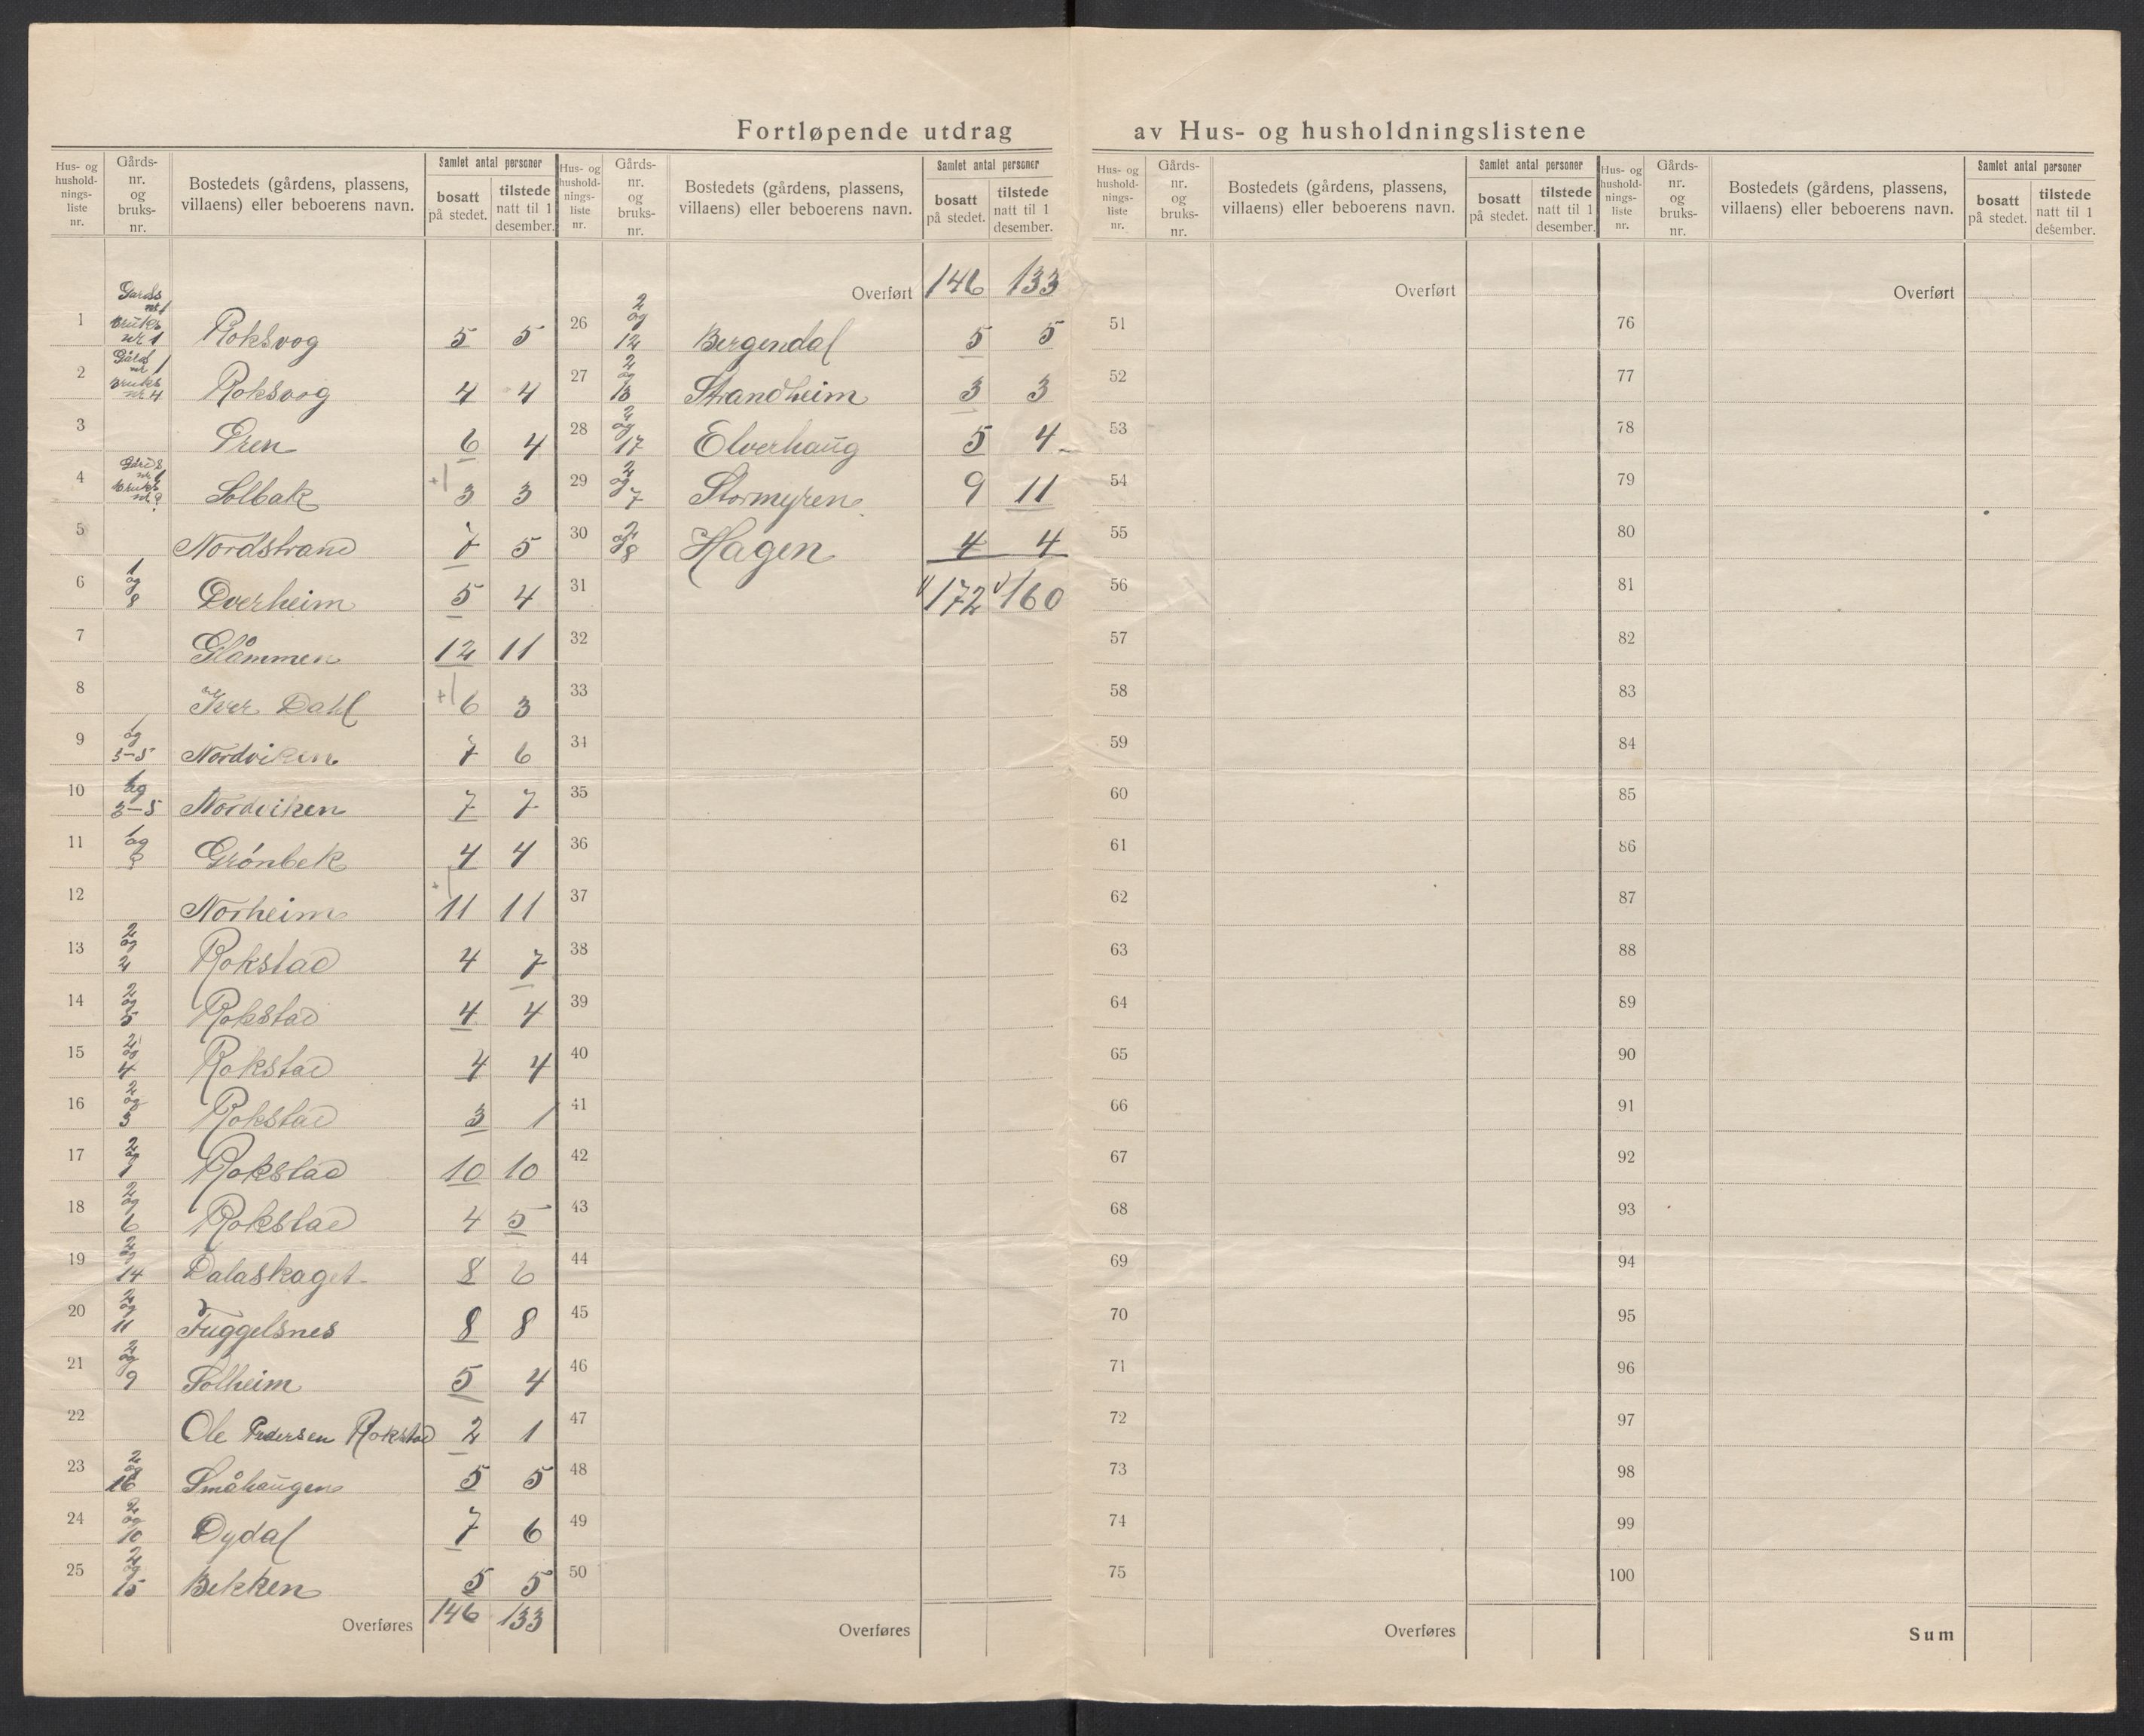 Fortløpende utdrag av Hus- og husholdningslistene
Hus- og husholdnings-liste nr. | Gårds-nr. og bruks-nr. | Bostedets (gårdens, plassens, villaens) eller beboerens navn. | Samlet antal personer bosatt på stedet. | tilstede natt til 1 desember.
1 Gards nr 1 Bruks nr 1 Roksvog 5 5
2 Gård nr 1 Bruks nr 4 Roksvog 4 4
3 Gren 6 4
4 Gårds nr 1 Bruks nr 9 Solbak +1 3 3
5 Nordstrand 7 5
6 1 og 8 Overheim 5 4
7 Glåmmen 12 11
8 Iver Dahl +1 6 3
9 1 og 3-5 Nordviken 7 6
10 1 og 3-5 Nordviken 7 7
11 1 og ? Grónbek 4 4
12 Norheim +1 11 11
13 2 og 2 Rokstad 4 7
14 2 og 5 Rokstad 4 4
15 2 og 4 Rokstad 4 4
16 2 og 3 Rokstad 3 1
17 2 og 1 Rokstad 10 10
18 2 og 6 Rokstad 4 5
19 2 og 14 Dalaskaget 8 6
20 2 og 11 Fuggelsnes 8 8
21 2 og 9 Solheim 5 4
22 Ole Pedersen Rokstad 2 1
23 2 og 16 Småhaugen 5 5
24 2 og 10 Dydal 7 6
25 2 og 15 Bekken 5 5
Overføres 146 133
Hus- og husholdnings-liste nr. | Gårds-nr. og bruks-nr. | Bostedets (gårdens, plassens, villaens) eller beboerens navn. | Samlet antal personer bosatt på stedet. | tilstede natt til 1 desember.
Overført 146 133
26 2 og 12 Bergendal 5 5
27 2 og 13 Strandheim 3 3
28 2 og 17 Elverhaug 5 4
29 2 og 7 Stormyren 9 11
30 2 og 8 Hagen 4 4
31 172 160
32
33
34
35
36
37
38
39
40
41
42
43
44
45
46
47
48
49
50
Overføres
Hus- og hushold-nings-liste nr. | Gårds-nr. og bruks-nr. | Bostedets (gårdens, plassens, villaens) eller beboerens navn. | Samlet antal personer bosatt på stedet. | tilstede natt til 1 desember.
Overført
51
52
53
54
55
56
57
58
59
60
61
62
63
64
65
66
67
68
69
70
71
72
73
74
75
Overføres
Hus- og hushold-nings-liste nr. | Gårds-nr. og bruks-nr. | Bostedets (gårdens, plassens, villaens) eller beboerens navn. | Samlet antal personer bosatt på stedet. | tilstede natt til 1 desember.
Overført
76
77
78
79
80
81
82
83
84
85
86
87
88
89
90
91
92
93
94
95
96
97
98
99
100
Sum